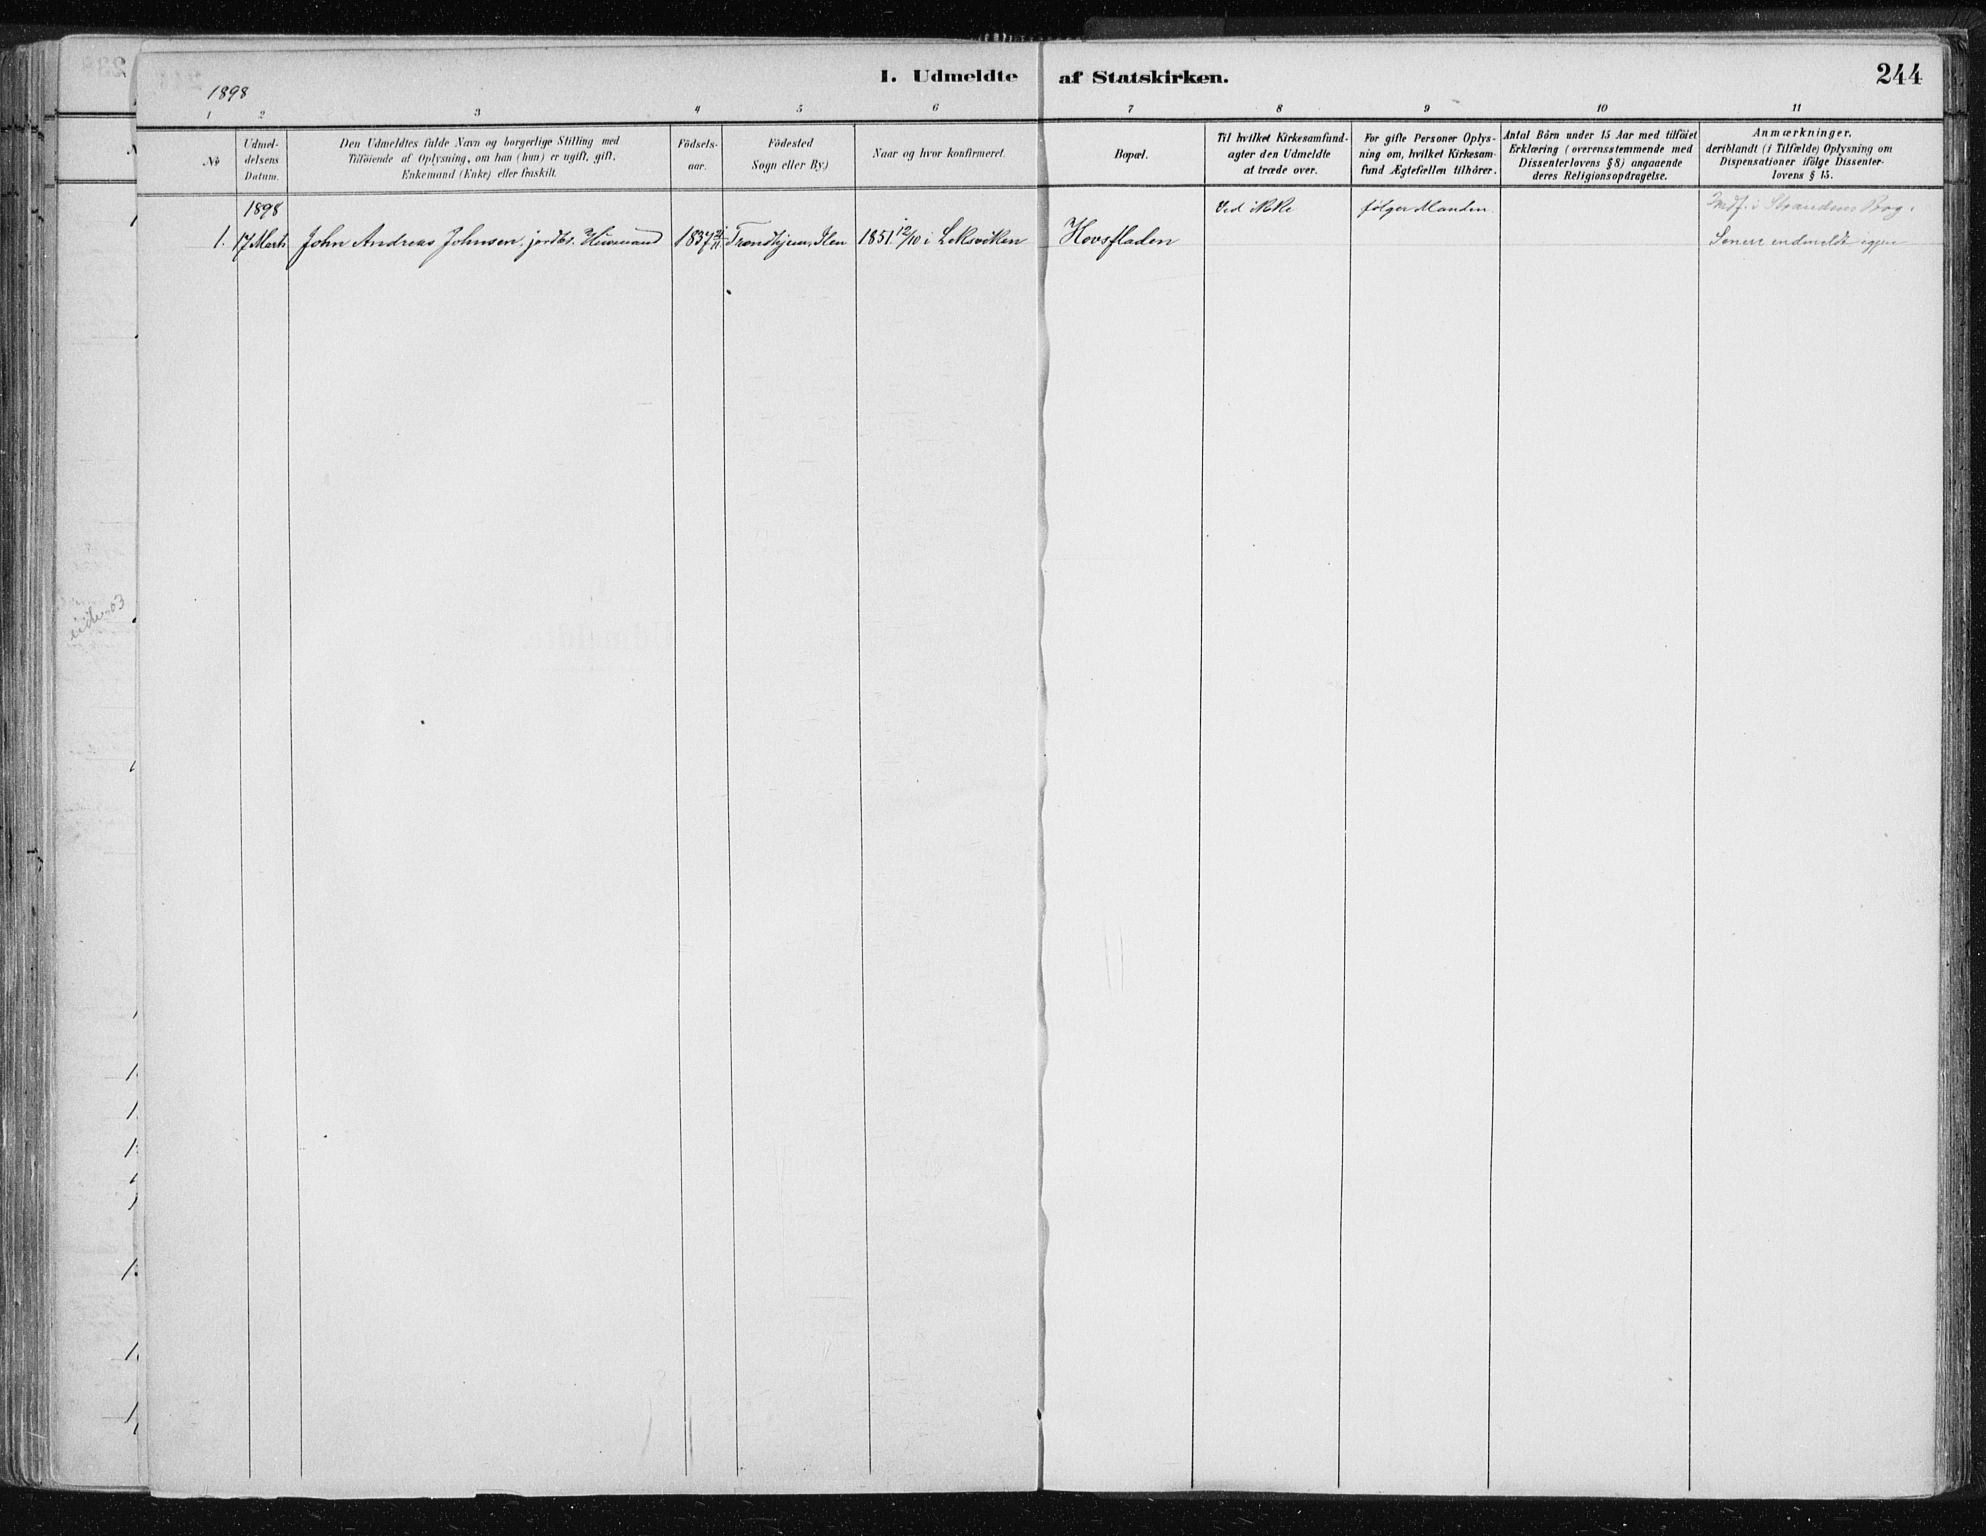 I. Udmeldte af Statskirken.
244
1898
1 2 3 4 5 6 7 8 9 10 11
No
Udmel-
delsens
Datum.
Den Udmeldtes fulde Navn og borgerlige Stilling med
Tilföiende af Oplysning, om han (hun) er ugift, gift,
Enkemand (Enke) eller fraskilt.
Födsels-
aar.
Födested
Sogn eller By.)
Naar og hvor konfirmeret.
Bopæl.
Til hvilket Kirkesamfund-
agter den Udmeldte
at træde over.
For gifte Personer Oplys-
ning om, hvilket Kirkesam-
fund Ægtefællen tilhörer.
Antal Börn under 15 Aar med tilföiet
Erklæring (overensstemmende med
Dissenterlovens § 8) angaaende
deres Religionsopdragelse.
Anmærkninger,
deriblandt (i Tilfælde) Oplysning om
Dispensationer ifölge Dissenter-
lovens § 15.
1898
Ved ikke
følger Manden.
1. 17 Marts John Andreas Johnsen, jordbr. Husmand 1837 Trondhjem, Ilen 1851 12/10 i Leksviken Hovsfladen
Senere indmeldt igjen